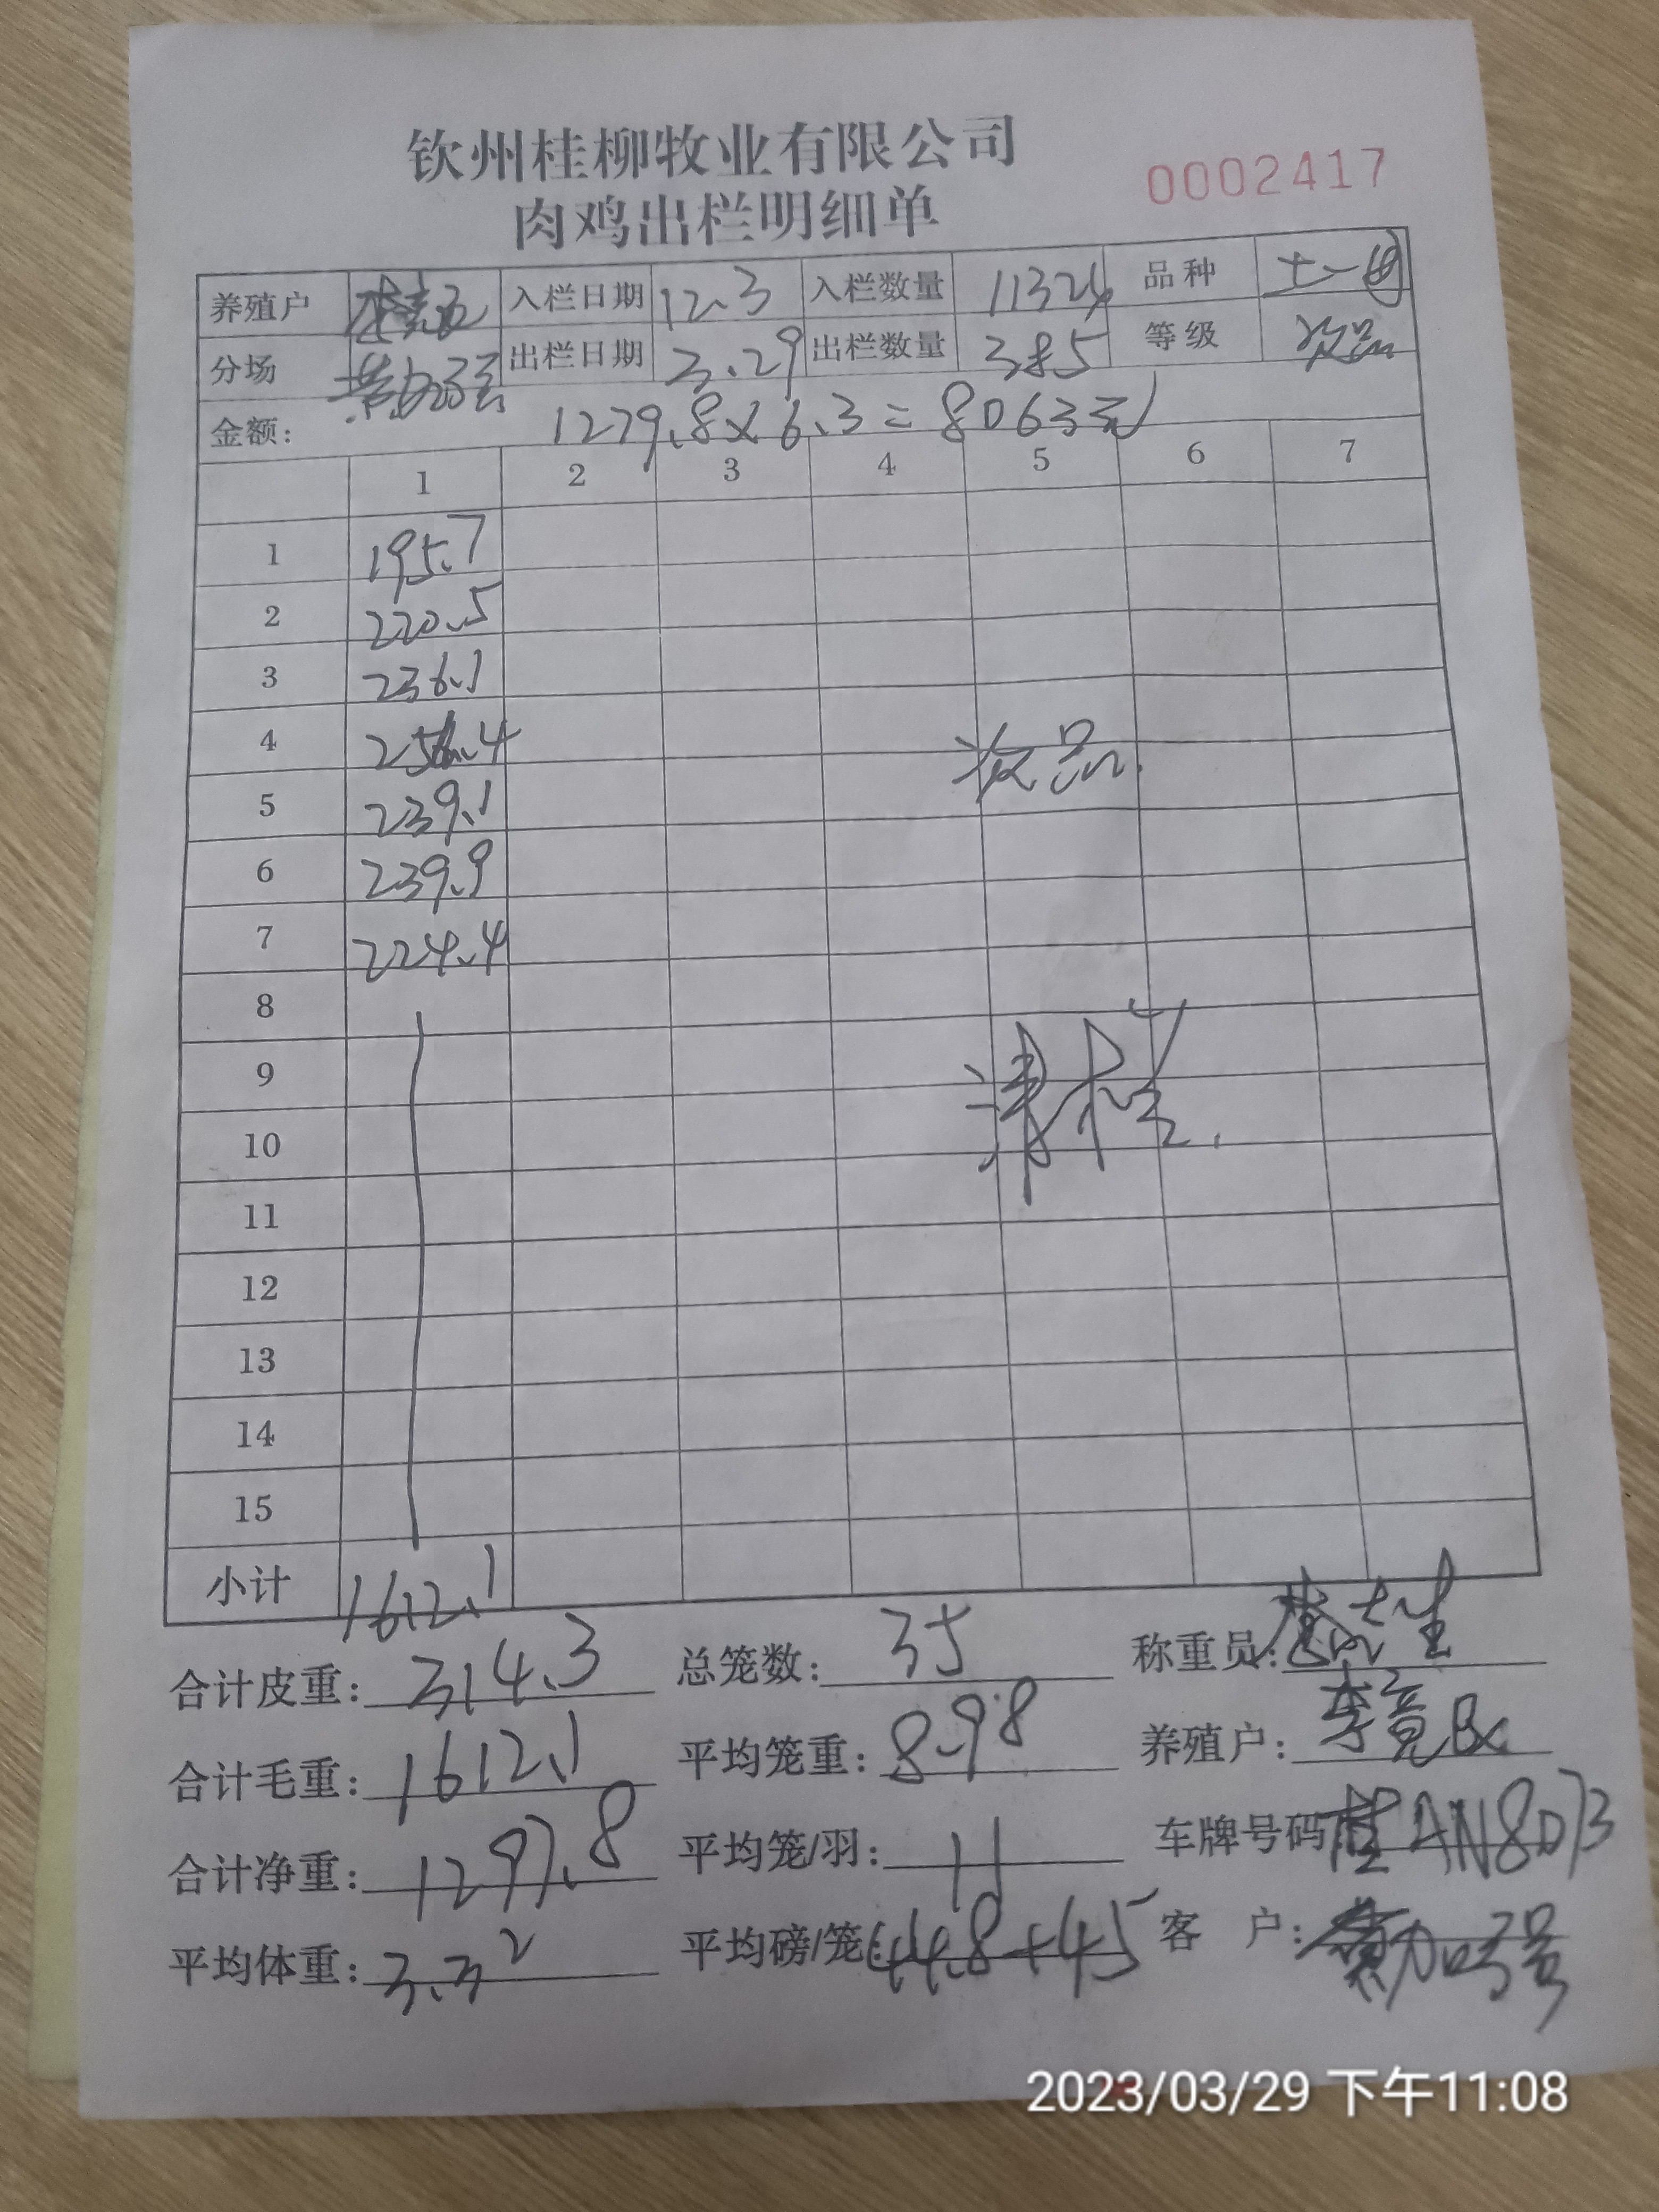 钦州桂柳牧业有限公司
肉鸡出栏明细单
0002417
养殖户 入栏日期 12.3 入栏数量 11324 品种
分场 出栏日期 3.29 出栏数量 385 等级 次品
金额: 1279.8×6.3=8063元
1 2 3 4 5 6 7
1 195.7
2 220.5
3 236.1
4 256.4 次品.
5 239.1
6 239.9
7 224.4
8
9 清栏.
10
11
12
13
14
15
小计 1612.1
合计皮重: 314.3 总笼数: 35 称重员:
合计毛重: 1612.1 平均笼重: 8.98 养殖户:
合计净重: 1297.8 平均笼/羽: 11 车牌号码
平均体重: 3.32 平均磅/笼: 44.8+45 客 户:
2023/03/29 下午11:08